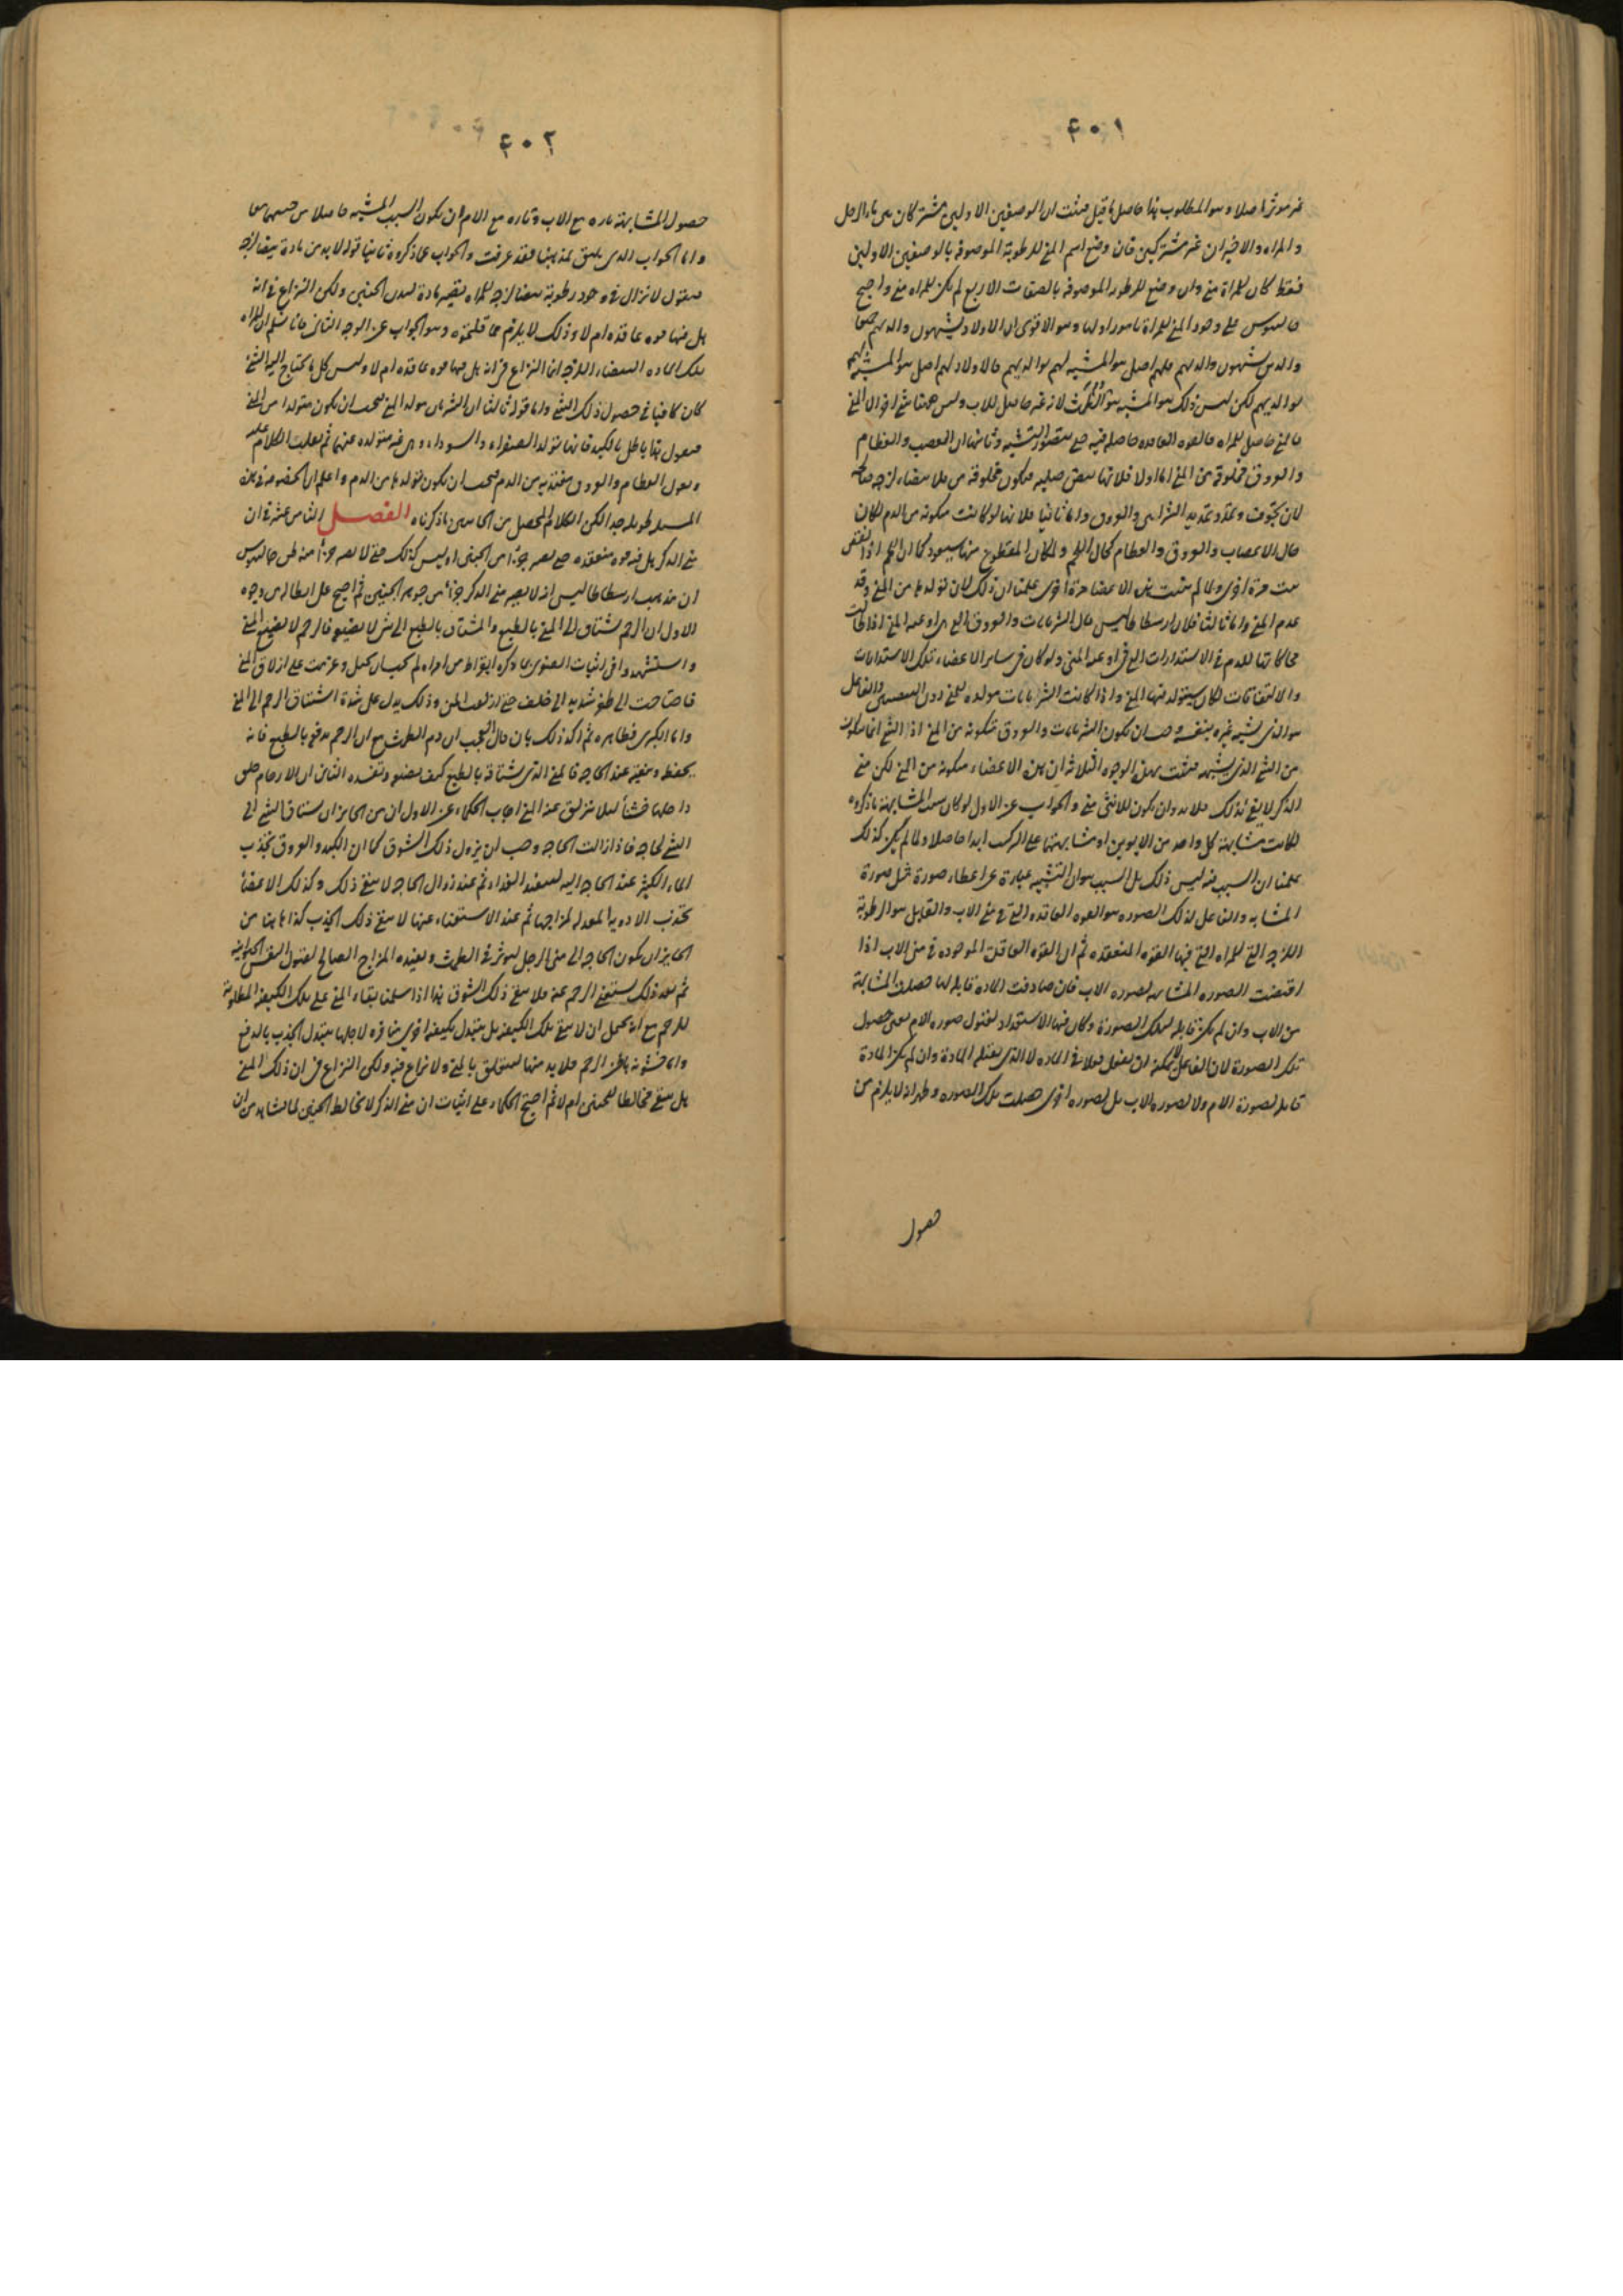 ۴۰۱
غير موثر اصلا وهو المطلوب هذا حاصل ما قيل فثبت ان الوصفين الاولين مشتركان بين ماء الرجل
والمراه والاخيران غير مشتركين فان وضع اسم المنى للرطوبة الموصوفه بالوصفين الاولين
فقط كان للمراة منى وان وضع للرطوبة الموصوفه بالصفات الاربع لم يكن للمراه منى واحتج
جالينوس على وجود المنى للمراة بامور اولها وهو الاقوى ان الاولاد يشبهون والديهم جميعا
والذين يشبهون والديهم فلهم اصل هو المشبه لهم بوالديهم فالاولاد لهم اصل هو المشبه لهم
بوالديهم لكن ليس ذلك هو المشبه هو الطمث لانه غير حاصل للاب وليس ههنا شى اخر الا المنى
فالمنى حاصل للمراه فالقوه العاقده حاصله فيه حتى يتصور التشبيه وثانيها ان العصب والعظام
والعروق مخلوقة من المنى اما اولا فلانها بيض صلبه فيكون مخلوقة من ماده بيضاء لزجه صالحة
لان يتجوف ويمتد وتمديد الشرايين والعروق واما ثانيا فلانها لو كانت متكونه من الدم لكان
حال الاعصاب والعروق والعظام كحال اللحم ولكان المقطوع منها سيعود كما ان اللحم اذا نقص
نبت مرة اخرى ولما لم تنبت هذه الاعضاء مرة اخرى علمنا ان ذلك لان تولدها من المنى وقد
عدم المنى واما ثالثا فلان ارسطاطاليس قال الشريانات والعروق التى تراد عند المنى اذا طالت
محاكاتها للدم فى الاستدارات التى تراد عند المنى ولو كان فى ساير الاعضاء تلك الاستدارات
والالتفافات لكان سيتولد فيها المنى واذا كانت الشريانات مولده للمنى دون السببين والفاعل
هو الذى يشبه غيره بنفسه وجب ان يكون الشريانات والعروق متكونه من المنى اذ الشى انما يتكون
من الشى الذى يشبهه فثبت بهذه الوجوه الثلاثه ان هذه الاعضاء متكونه من المنى لكن منى
الذكر لا يفى بذلك فلابد وان يكون للانثى منى والجواب عن الاول لو كان سبب المشابهة ما ذكروه
لكانت مشابهة كل واحد من الابوين او مشابهتهما على التركيب ابدا حاصلا ولما لم يكن كذلك
علمنا ان السبب فيه ليس ذلك بل السبب هو ان التشبيه عبارة عن اعطاء صورة مثل صورة
المشابه والفاعل لذلك الصوره هو القوه العاقده التى فى منى الاب والقابل هو الرطوبة
اللزجه التى للمراه التى فيها القوه المنعقده ثم ان القوه العاقدة الموجوده فى منى الاب اذا
اقتضت الصوره المشابهه لصوره الاب فان صادفت الماده قابله لها حصلت المشابهة
من الاب وان لم يكن قابله لتلك الصورة وكان فيها الاستعداد لقبول صوره الام يعنى حصول
تلك الصورة لان الفاعل لا يمكنه ان يفعل فعلا فى الماده الا الذى يقبله المادة وان لم يكن المادة
قابله لصورة الام ولا لصوره الاب بل لصوره اخرى حصلت تلك الصوره وظهر انه لا يلزم من
حصول
۴۰۲
حصول المشابهة تاره مع الاب وتاره مع الام ان يكون السبب المشبه حاصلا من جسمهما معا
واما الجواب الذى يليق بمذهبنا فقد عرفت والجواب عما ذكروه ثانيا قوله لابد من مادة بيضا لزجه
فنقول لا نزاع فى وجود رطوبة بيضا لزجه للمراه يصير مادة لبدن الجنين ولكن النزاع فى انه
هل فيها قوه عاقده ام لا وذلك لا يلزم مما قلتموه وهو الجواب عن الوجه الثانى فانا نسلم ان للمراه
تلك الماده البيضاء اللزجه انما النزاع فى انه هل فيها قوه عاقده ام لا وليس كل ما يحتاج اليه الشى
كان كافيا فى حصول ذلك الشى واما قوله ثالثا ان الشريان مولد المنى فيجب ان يكون متولدا من المنى
فنقول هذا باطل بالكبد فانها تولد الصفراء والسوداء وهى غير متولده عنهما ثم نقلب الكلام عليه
ونقول العظام والعروق مغتذيه من الدم فيجب ان يكون تولدها من الدم واعلم ان الخصومه فى هذه
المسئله طويله جدا لكن الكلام المحصل من الجانبين ما ذكرناه الفصل الثامن عشر فى ان
منى الذكر هل فيه قوه منعقده حتى يصير جزءا من الجنين او ليس كذلك حتى لا يصير جزءا منه ظن جالينوس
ان مذهب ارسطاطاليس انه لا يصير منى الذكر جزءا من جوهر الجنين ثم احتج على ابطاله من وجوه
الاول ان الرحم يشتاق الى المنى بالطبع والمشتاق بالطبع الى شى لا يضيعه فالرحم لا يضيع المنى
واستشهد فى اثبات الصغرى بما ذكره ابقراط من امراه لم يحب ان تحبل وعزمت على ازلاق المنى
فاحتاجت الى طفر شديد الى خلف حتى ازلقت المنى وذلك يدل على شدة اشتياق الرحم الى المنى
واما الكبرى فظاهره ثم اكد ذلك بان قال العجب ان دم الطمث مع ان الرحم يدفعه بالطبع فانه
يحفظه ومنعه عند الحاجه فالمنى الذى يشتاقه بالطبع كيف يضيعه وتفسده الثانى ان الارحام خلق
داخلها خشنا لئلا ينزلق عنه المنى اجاب الحكماء عن الاول ان من الجايز ان يشتاق الشى الى
الشى لحاجه فاذا زالت الحاجه وجب ان يزول ذلك الشوق كما ان الكبد والعروق تجذب
الماء الكثير عند الحاجه اليه لتنفيذ الغذاء ثم عند زوال الحاجه لا يبقى ذلك وكذلك الاعضاء
تجذب الادويه المعدله لمزاجها ثم عند الاستغناء عنها لا يبقى ذلك الجذب كذا هاهنا من
الجايز ان يكون الحاجه الى منى الرجل ليوثر فى الطمث ويفيده المزاج الصالح لقبول النفس الحيوانيه
ثم بعد ذلك يستغنى الرحم عنه فلا يبقى ذلك الشوق هذا اذا سلمنا بقاء المنى على تلك الكيفيه المطلوبة
للرحم مع انه يحتمل ان لا يبقى تلك الكيفيه بل يتبدل بكيفيه اخرى منافره لاجلها يتبدل الجذب بالدفع
واما خشونة باطن الرحم فلابد منها ليتعلق بالمنى ولا نزاع فيه ولكن النزاع فى ان ذلك المنى
هل يبقى مخالطا للجنين ام لا ثم احتج الحكماء على اثبات ان منى الذكر لا يخالط الجنين لما نشاهد من ان